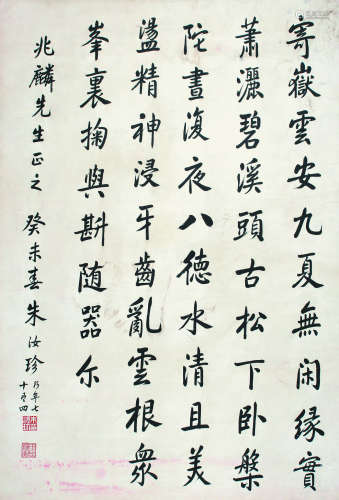 寄嶽雲安九夏無閑緣實
蕭灑碧溪頭古松下卧槃
陀晝復夜八德水清且美
盪精神浸牙齒亂雲根眾
峯裏掬與斟随器尔
兆麟先生正之 癸未春朱汝珍 乃年七
十有四